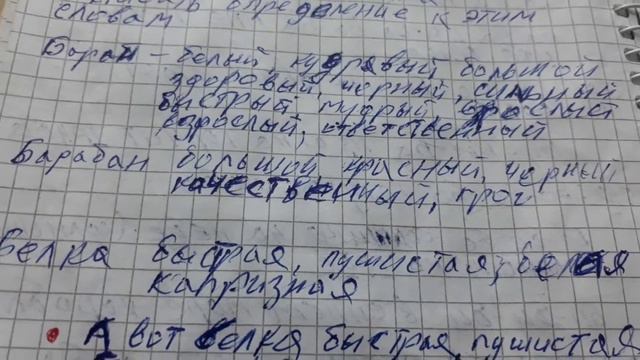 определение к этим
словам
Баран – белый, кудрявый, большой
здоровый, черный, сильный
быстрый, мудрый, взрослый
взрослый, ответственный
Барабан большой, красный, черный
качественный, гром
белка быстрая, пушистая, белая
капризная
А вот белка, быстрая, пушистая